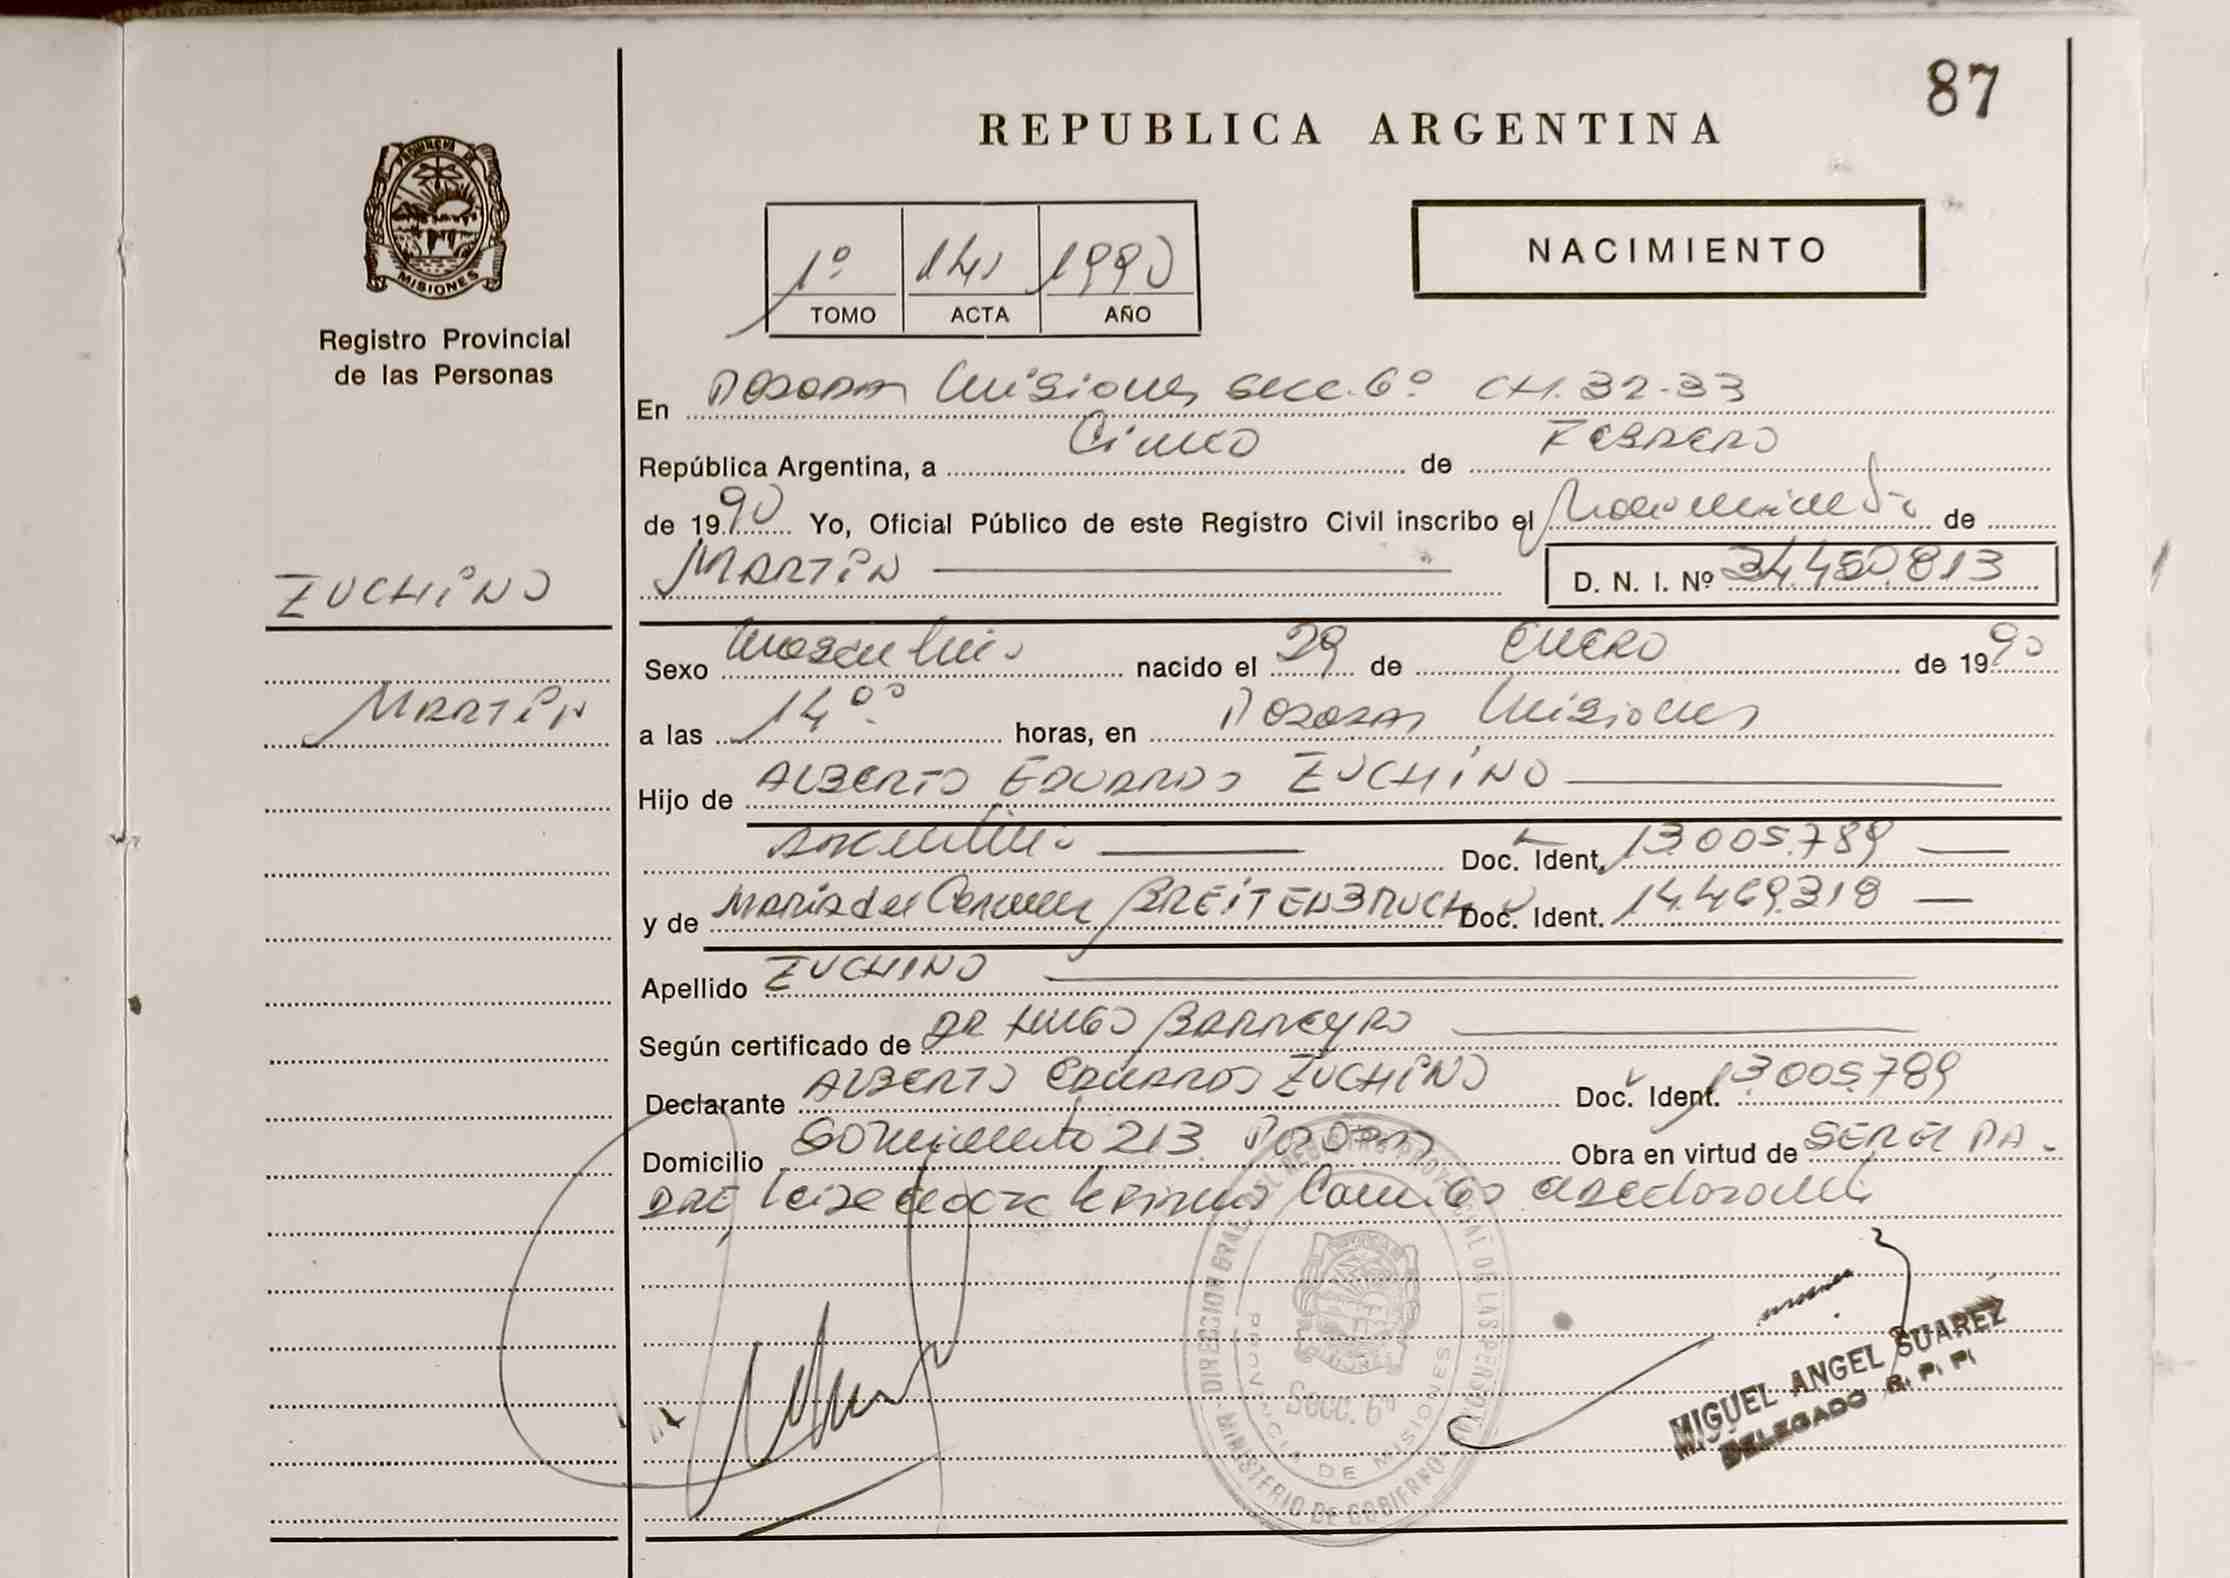 87
REPUBLICA ARGENTINA
PROVINCIA DE
MISIONES
Registro Provincial
de las Personas
NACIMIENTO
1º 141 1990
TOMO ACTA AÑO
En Posadas Misiones Secc. 6º CH. 32-33
República Argentina, a Cinco de Febrero
de 1990 Yo, Oficial Público de este Registro Civil inscribo el Nacimiento de
MARTIN D. N. I. Nº 34.450.813
ZUCHINO
MARTIN
Sexo Masculino nacido el 29 de ENERO de 1990
a las 14º⁰ horas, en Posadas Misiones
Hijo de ALBERTO EDUARDO ZUCHINO
Argentino Doc. Ident. 13.005.789
y de Maria del Carmen BREITENBRUCH Doc. Ident. 14.469.318
Apellido ZUCHINO
Según certificado de DR HUGO BARNEYRO
Declarante ALBERTO EDUARDO ZUCHINO Doc. Ident. 13.005.789
Domicilio Sarmiento 213 Posadas Obra en virtud de SER EL PA-
DRE
DIRECCION GRAL. DEL REGISTRO PROVINCIAL DE LAS PERSONAS
Secc. 6º
PROVINCIA DE MISIONES
MINISTERIO DE GOBIERNO
MIGUEL ANGEL SUAREZ
DELEGADO R. P. P.